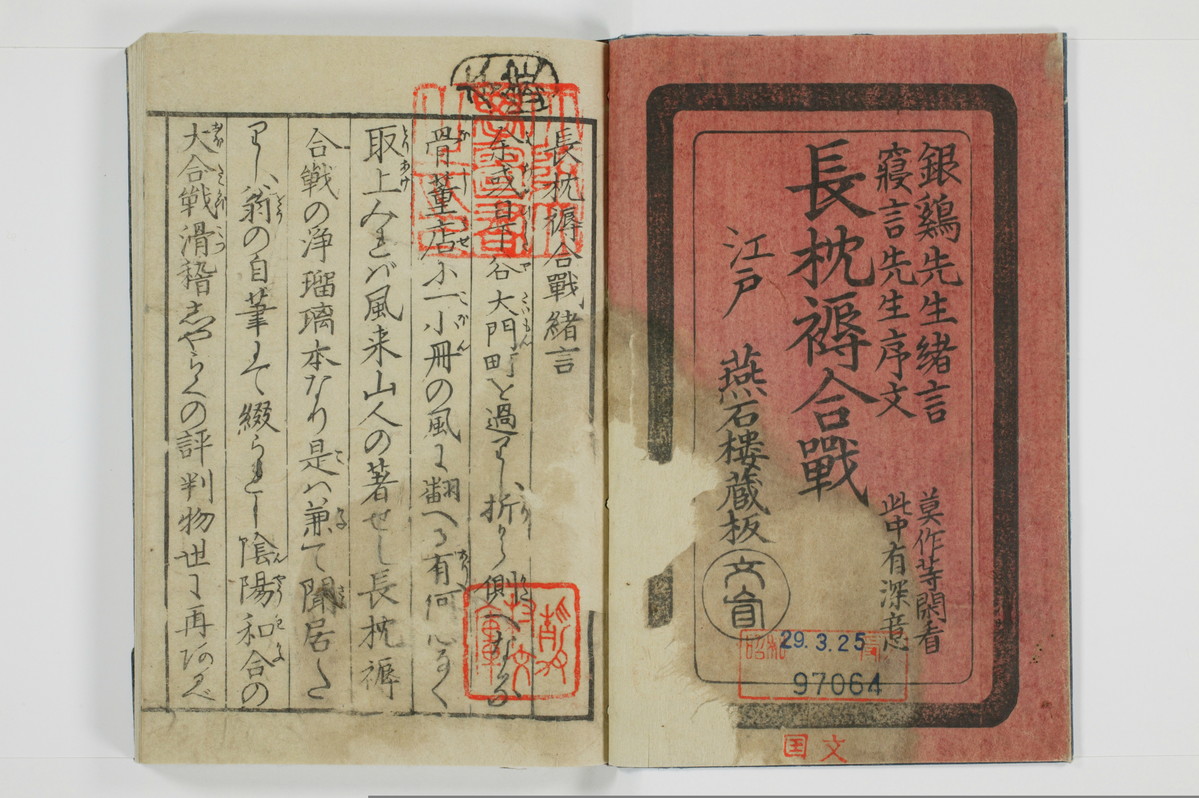 銀鷄先生緒言
寢言先生序文
莫作等閑看
此中有深意
長枕褥合戰
江戸 燕石楼蔵板
29.3.25
97064
国文
長枕褥合戰緒言
余或日下谷大門町を過りし折から側へなる
骨董店に一小冊の風に翻へる有何心なく
取上みれバ風来山人の著せし長枕褥
合戦の浄瑠璃本なり是ハ兼て聞居た
りし翁の自筆にて綴られし陰陽和合の
大合戦滑稽しやらくの評判物世に再び